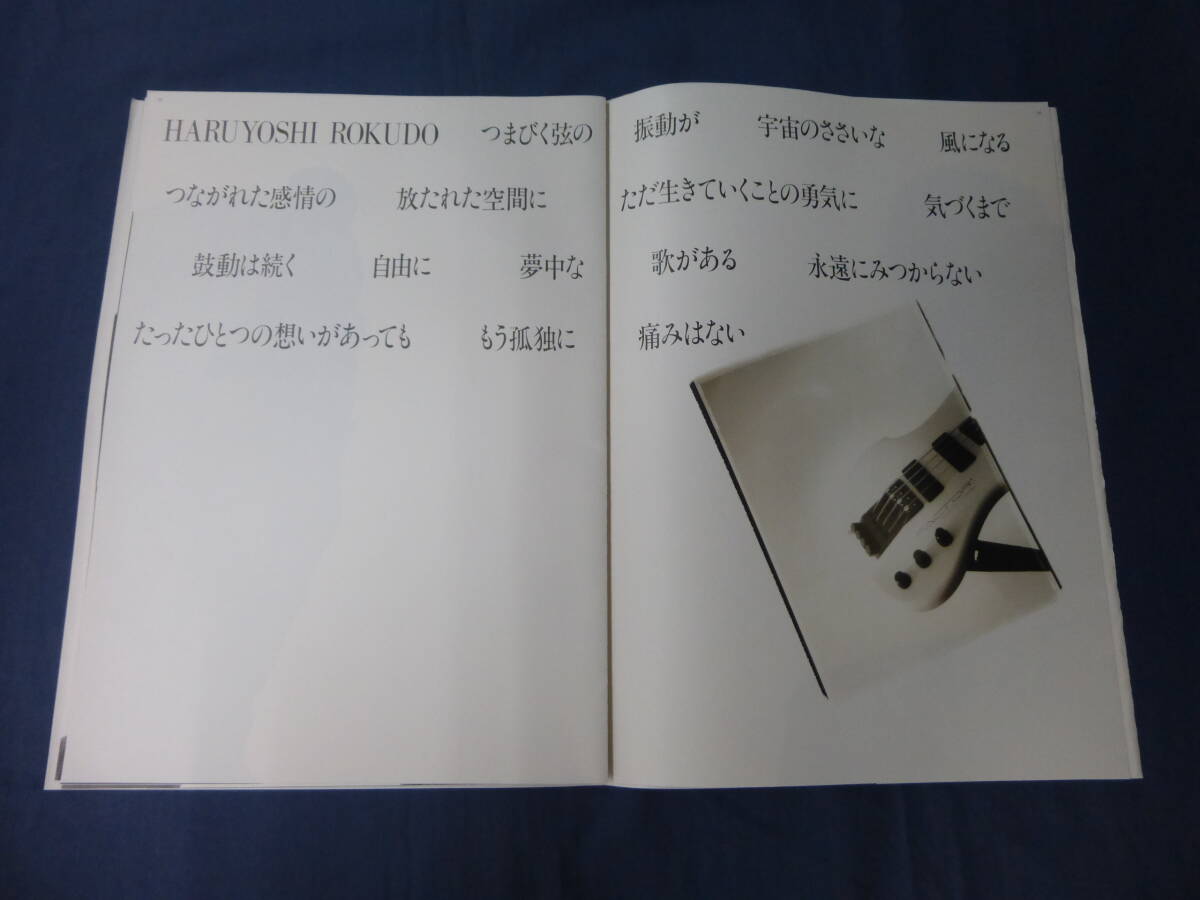 HARUYOSHI ROKUDO つまびく弦の 振動が 宇宙のささいな 風になる
つながれた感情の 放たれた空間に ただ生きていくことの勇気に 気づくまで
鼓動は続く 自由に 夢中な 歌がある 永遠にみつからない
たったひとつの想いがあっても もう孤独に 痛みはない